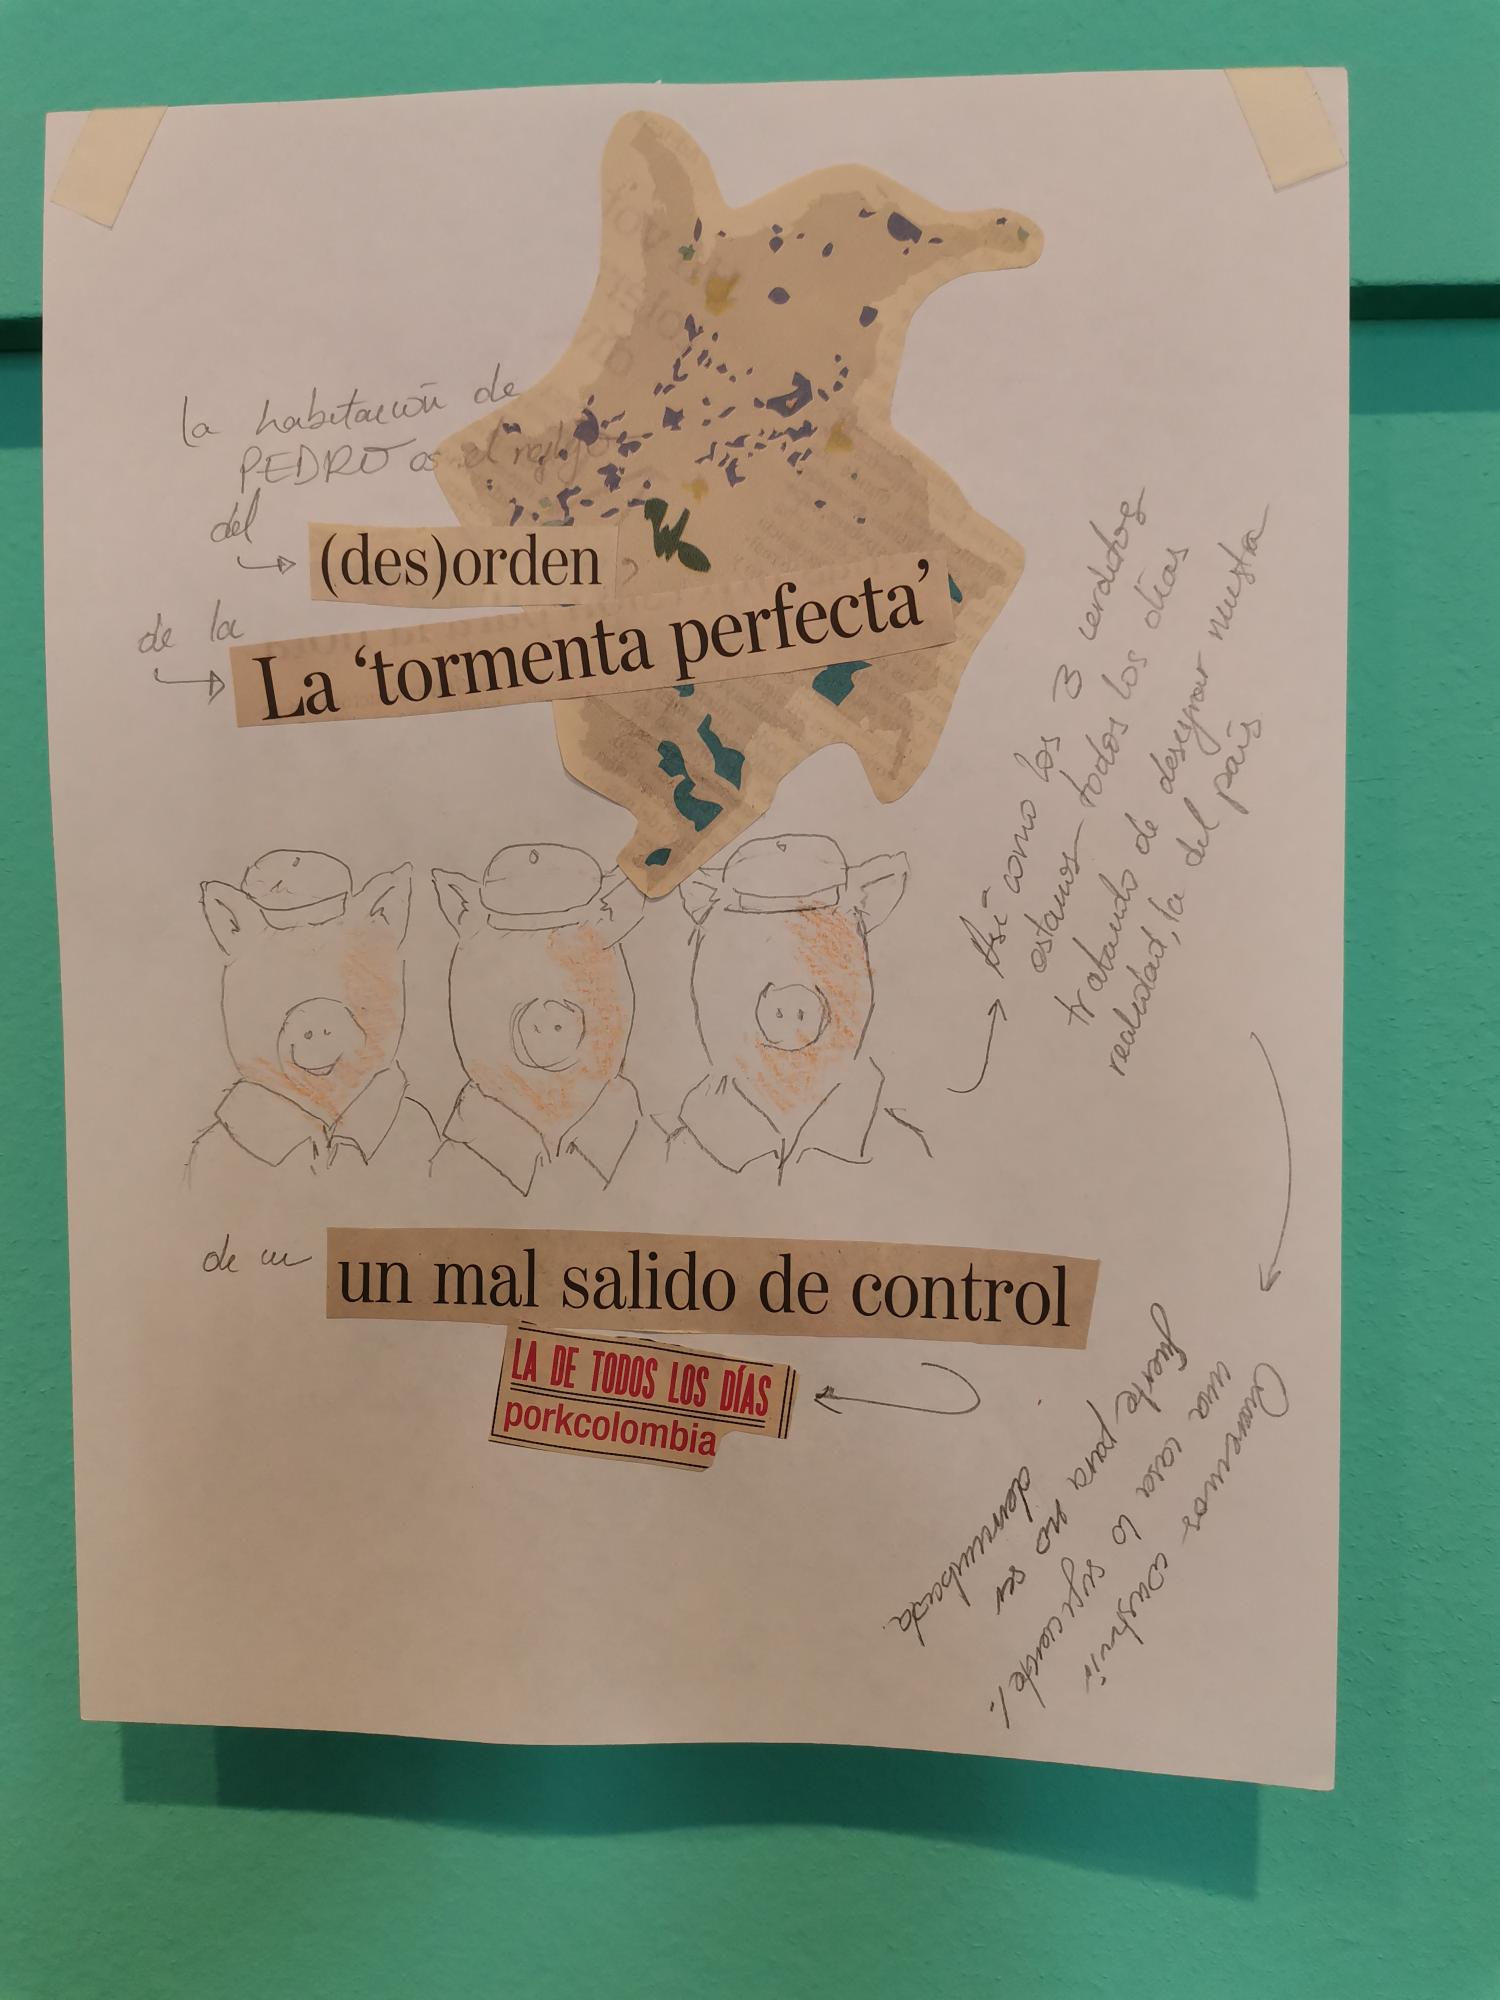 la habitación de
PEDRO es el reflejo
del
(des)orden
de la
La ‘tormenta perfecta’
Así como los 3 cerditos
estamos todos los días
tratando de desegrar nuestra
realidad, la del país
de un
un mal salido de control
LA DE TODOS LOS DÍAS
porkcolombia
Queremos construir
una casa lo suficiente/.
fuerte para no ser
derrumbada.